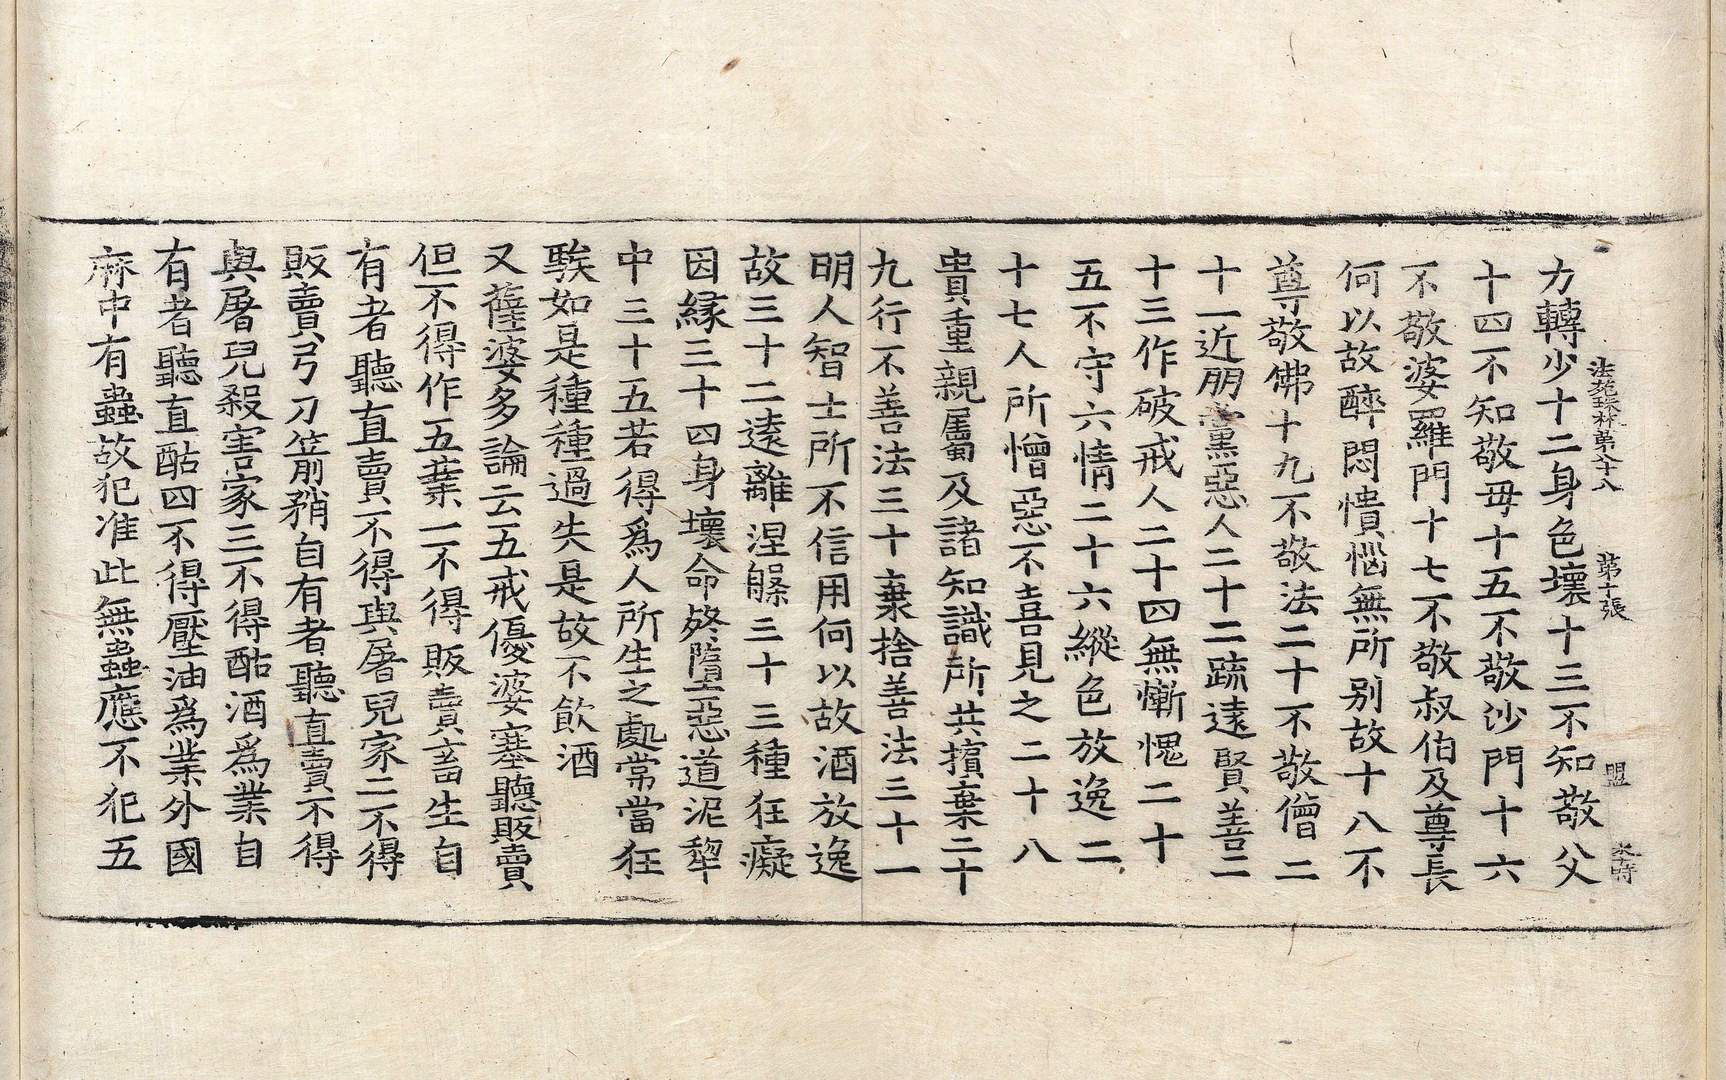 力轉少十二身色壞十三不知敬父
法苑珠林第八十八 第十張 盟
十四不知敬母十五不敬沙門十六
不敬婆羅門十七不敬叔伯及尊長
何以故醉悶憒惱無所別故十八不
尊敬佛十九不敬法二十不敬僧二
十一近朋黨惡人二十二疏遠賢善二
十三作破戒人二十四無慚愧二十
五不守六情二十六縱色放逸二
十七人所憎惡不喜見之二十八
貴重親屬及諸知識所共擯棄二十
九行不善法三十棄捨善法三十一
明人智士所不信用何以故酒放逸
故三十二遠離涅槃三十三種狂癡
因緣三十四身壞命終墮惡道泥犂
中三十五若得爲人所生之處常當狂
騃如是種種過失是故不飲酒
又薩婆多論云五戒優婆塞聽販賣
但不得作五業一不得販賣畜生自
有者聽直賣不得與屠兒家二不得
販賣弓刀箭矟自有者聽直賣不得
與屠兒殺害家三不得酤酒爲業自
有者聽直酤四不得壓油爲業外國
麻中有蟲故犯准此無蟲應不犯五